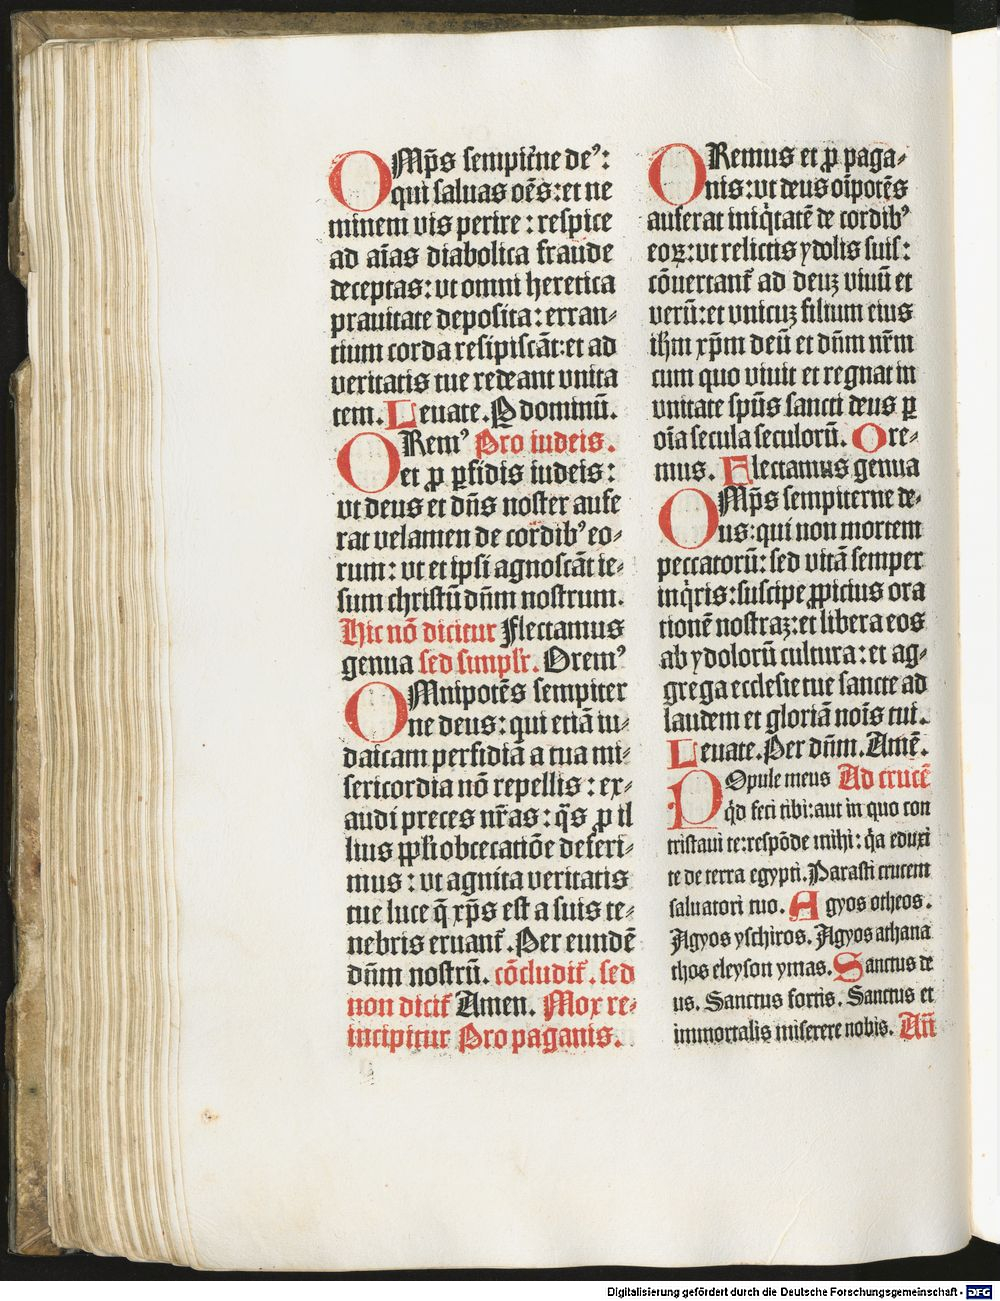 OMp̄s sempit̄ne deꝰ:
qui saluas oēs: et ne
minem vis perire: respice
ad aīas diabolica fraude
deceptas: vt omni heretica
prauitate deposita: erran⸗
tium corda resipiscāt: et ad
veritatis tue redeant vnita
tem. Leuate. P dominū.
ORemꝰ Pro iudeis.
et ꝓ ꝑfidis iudeis:
vt deus et dn̄s noster aufe
rat velamen de cordibꝰ eo⸗
rum: vt et ipsi agnoscāt ie⸗
sum christū dn̄m nostrum.
Hic nō dicitur Flectamus
genua sed simplr̄. Oremꝰ
OMnipotēs sempiter
ne deus: qui etiā iu⸗
daicam perfidiā a tua mi⸗
sericordia nō repellis: ex⸗
audi preces nr̄as: q̄s ꝓ il
lius ppl̄i obcecatiōe deferi⸗
mus: vt agnita veritatis
tue luce q̄ xp̄s est a suis te⸗
nebris eruant̄. Per eundē
dn̄m nostrū. cōcludit̄. sed
non dicit̄ Amen. Mox re⸗
incipitur Pro paganis.
ORemus et ꝓ paga⸗
nis: vt deus oīpotēs
auferat iniq̇tatē de cordibꝰ
eoꝝ: vt relictis ydolis suis:
cōuertant̄ ad deuꝫ viuū et
verū: et vnicuꝫ filium eius
ih̄m xp̄m deū et dn̄m nr̄m
cum quo viuit et regnat in
vnitate sp̄us sancti deus ꝑ
oīa secula seculorū. Ore⸗
mus. Flectamus genua
OMp̄s sempiterne de⸗
us: qui non mortem
peccatorū: sed vitā semper
inq̇ris: suscipe ꝓpicius ora
tionē nostraꝫ: et libera eos
ab ydolorū cultura: et ag⸗
grega ecclesie tue sancte ad
laudem et gloriā nois tui.
Leuate. Per dn̄m. Amē.
POpule meus Ad crucē
q̇d feci tibi: aut in quo con
tristaui te: respōde mihi: q̇a eduxi
te de terra egypti. Parasti crucem
saluatori tuo. Agyos otheos.
Agyos yschiros. Agyos athana
thos eleyson ymas. Sanctus de
us. Sanctus fortis. Sanctus et
immortalis miserere nobis. An̄
Digitalisierung gefördert durch die Deutsche Forschungsgemeinschaft - DFG